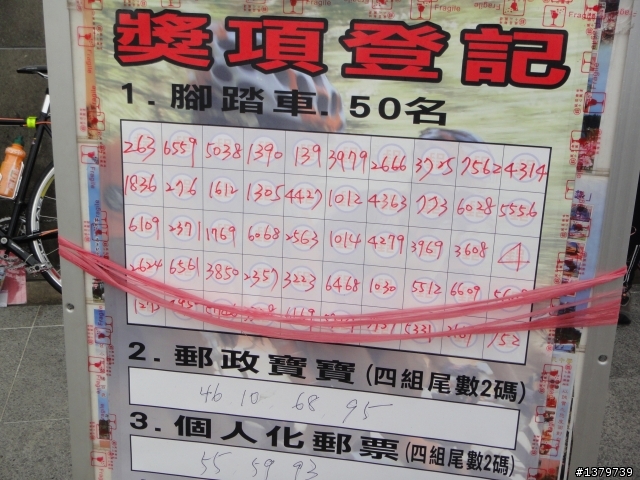 獎項登記
1. 腳踏車. 50名
263 6559 5038 1390 139 3979 2666 3725 7562 4314
1836 276 1612 1305 4427 1012 4363 773 6028 5556
6109 2371 1769 6068 2563 1014 4279 3969 3608 4
2624 6561 3850 2357 3223 6468 1030 5512 6609
5331 752
2. 郵政寶寶(四組尾數2碼)
46 10 68 95
3. 個人化郵票(四組尾數2碼)
55 59 93
#1379739